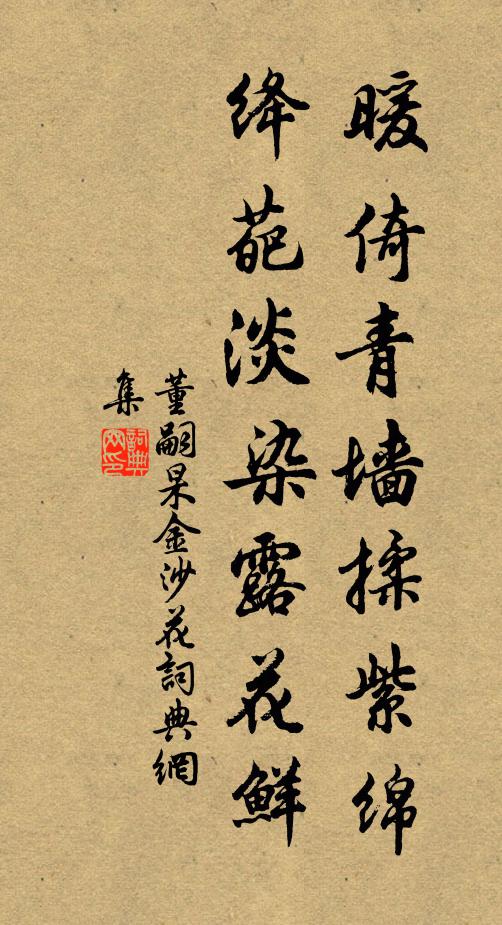 暖倚青墙揉紫绵
绛葩淡染露花鲜
董嗣杲金沙花詞典網
集
詞典網印